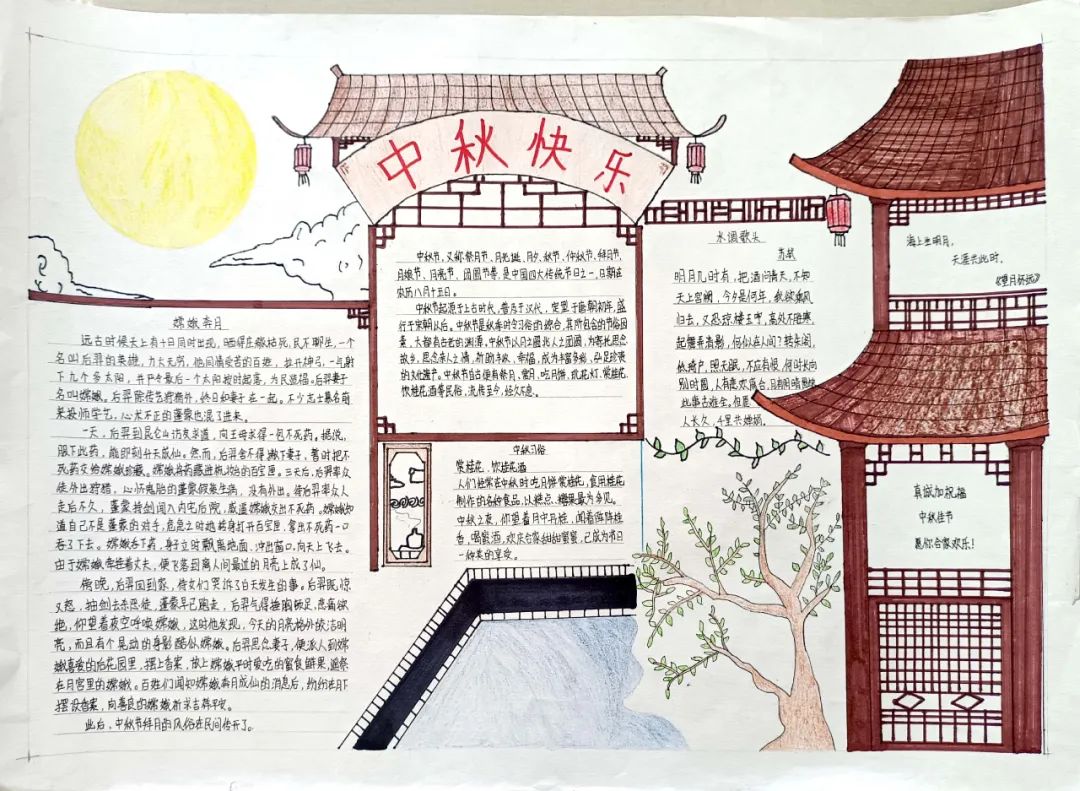 中秋快乐
中秋节，又称祭月节、月光诞、月夕、秋节、仲秋节、拜月节、
月娘节、月亮节、团圆节等，是中国四大传统节日之一，日期在
农历八月十五日。
中秋节起源于上古时代，普及于汉代，定型于唐朝初年，盛
行于宋朝以后。中秋节是秋季时令习俗的综合，其所包含的节俗因
素，大都有古老的渊源，中秋节以月之圆兆人之团圆，为寄托思念
故乡，思念亲人之情，祈盼丰收、幸福，成为丰富多彩、弥足珍贵
的文化遗产。中秋节自古便有祭月、赏月、吃月饼、玩花灯、赏桂花、
饮桂花酒等民俗，流传至今，经久不息。
水调歌头
苏轼
明月几时有，把酒问青天，不知
天上宫阙，今夕是何年，我欲乘风
归去，又恐琼楼玉宇，高处不胜寒，
起舞弄清影，何似在人间？转朱阁，
低绮户，照无眠，不应有恨，何时长向
别时圆，人有悲欢离合，月有阴晴圆缺
此事古难全。但愿
人长久，千里共婵娟。
海上生明月，
天涯共此时。
《望月怀远》
嫦娥奔月
远古时候天上有十日同时出现，晒得庄稼枯死，民不聊生，一个
名叫后羿的英雄，力大无穷，他同情受苦的百姓，拉开神弓，一气射
下九个多太阳，并严令最后一个太阳按时起落，为民造福。后羿妻子
名叫嫦娥。后羿除传艺狩猎外，终日和妻子在一起。不少志士慕名前
来投师学艺，心术不正的蓬蒙也混了进来。
一天，后羿到昆仑山访友求道，向王母求得一包不死药。据说，
服下此药，能即刻升天成仙。然而，后羿舍不得撇下妻子，暂时把不
死药交给嫦娥珍藏。嫦娥将药藏进梳妆台的百宝匣。三天后，后羿率众
徒外出狩猎，心怀鬼胎的蓬蒙假装生病，没有外出。待后羿率众人
走后不久，蓬蒙持剑闯入内宅后院，威逼嫦娥交出不死药。嫦娥知
道自己不是蓬蒙的对手，危急之时她转身打开百宝匣，拿出不死药一口
吞了下去。嫦娥吞下药，身子立时飘离地面，冲出窗口，向天上飞去。
由于嫦娥牵挂着丈夫，便飞落到离人间最近的月亮上成了仙。
傍晚，后羿回到家，侍女们哭诉了白天发生的事。后羿既惊
又怒，抽剑去杀恶徒，蓬蒙早已跑走，后羿气得捶胸顿足，悲痛欲
绝，仰望着夜空呼唤嫦娥，这时他发现，今天的月亮格外皎洁明
亮，而且有个晃动的身影酷似嫦娥。后羿思念妻子，便派人到嫦
娥喜爱的后花园里，摆上香案，放上嫦娥平时爱吃的蜜食鲜果，遥祭
在月宫里的嫦娥。百姓们闻知嫦娥奔月成仙的消息后，纷纷在月下
摆设香案，向善良的嫦娥祈求吉祥平安。
此后，中秋节拜月的风俗在民间传开了。
中秋习俗
赏桂花，饮桂花酒
人们经常在中秋时吃月饼赏桂花，食用桂花
制作的各种食品，以糕点、糖果最为多见。
中秋之夜，仰望着月中丹桂，闻着阵阵桂
香，喝蜜酒，欢庆合家甜甜蜜蜜，已成为节日
一种美的享受。
真诚加祝福
中秋佳节
愿你合家欢乐！